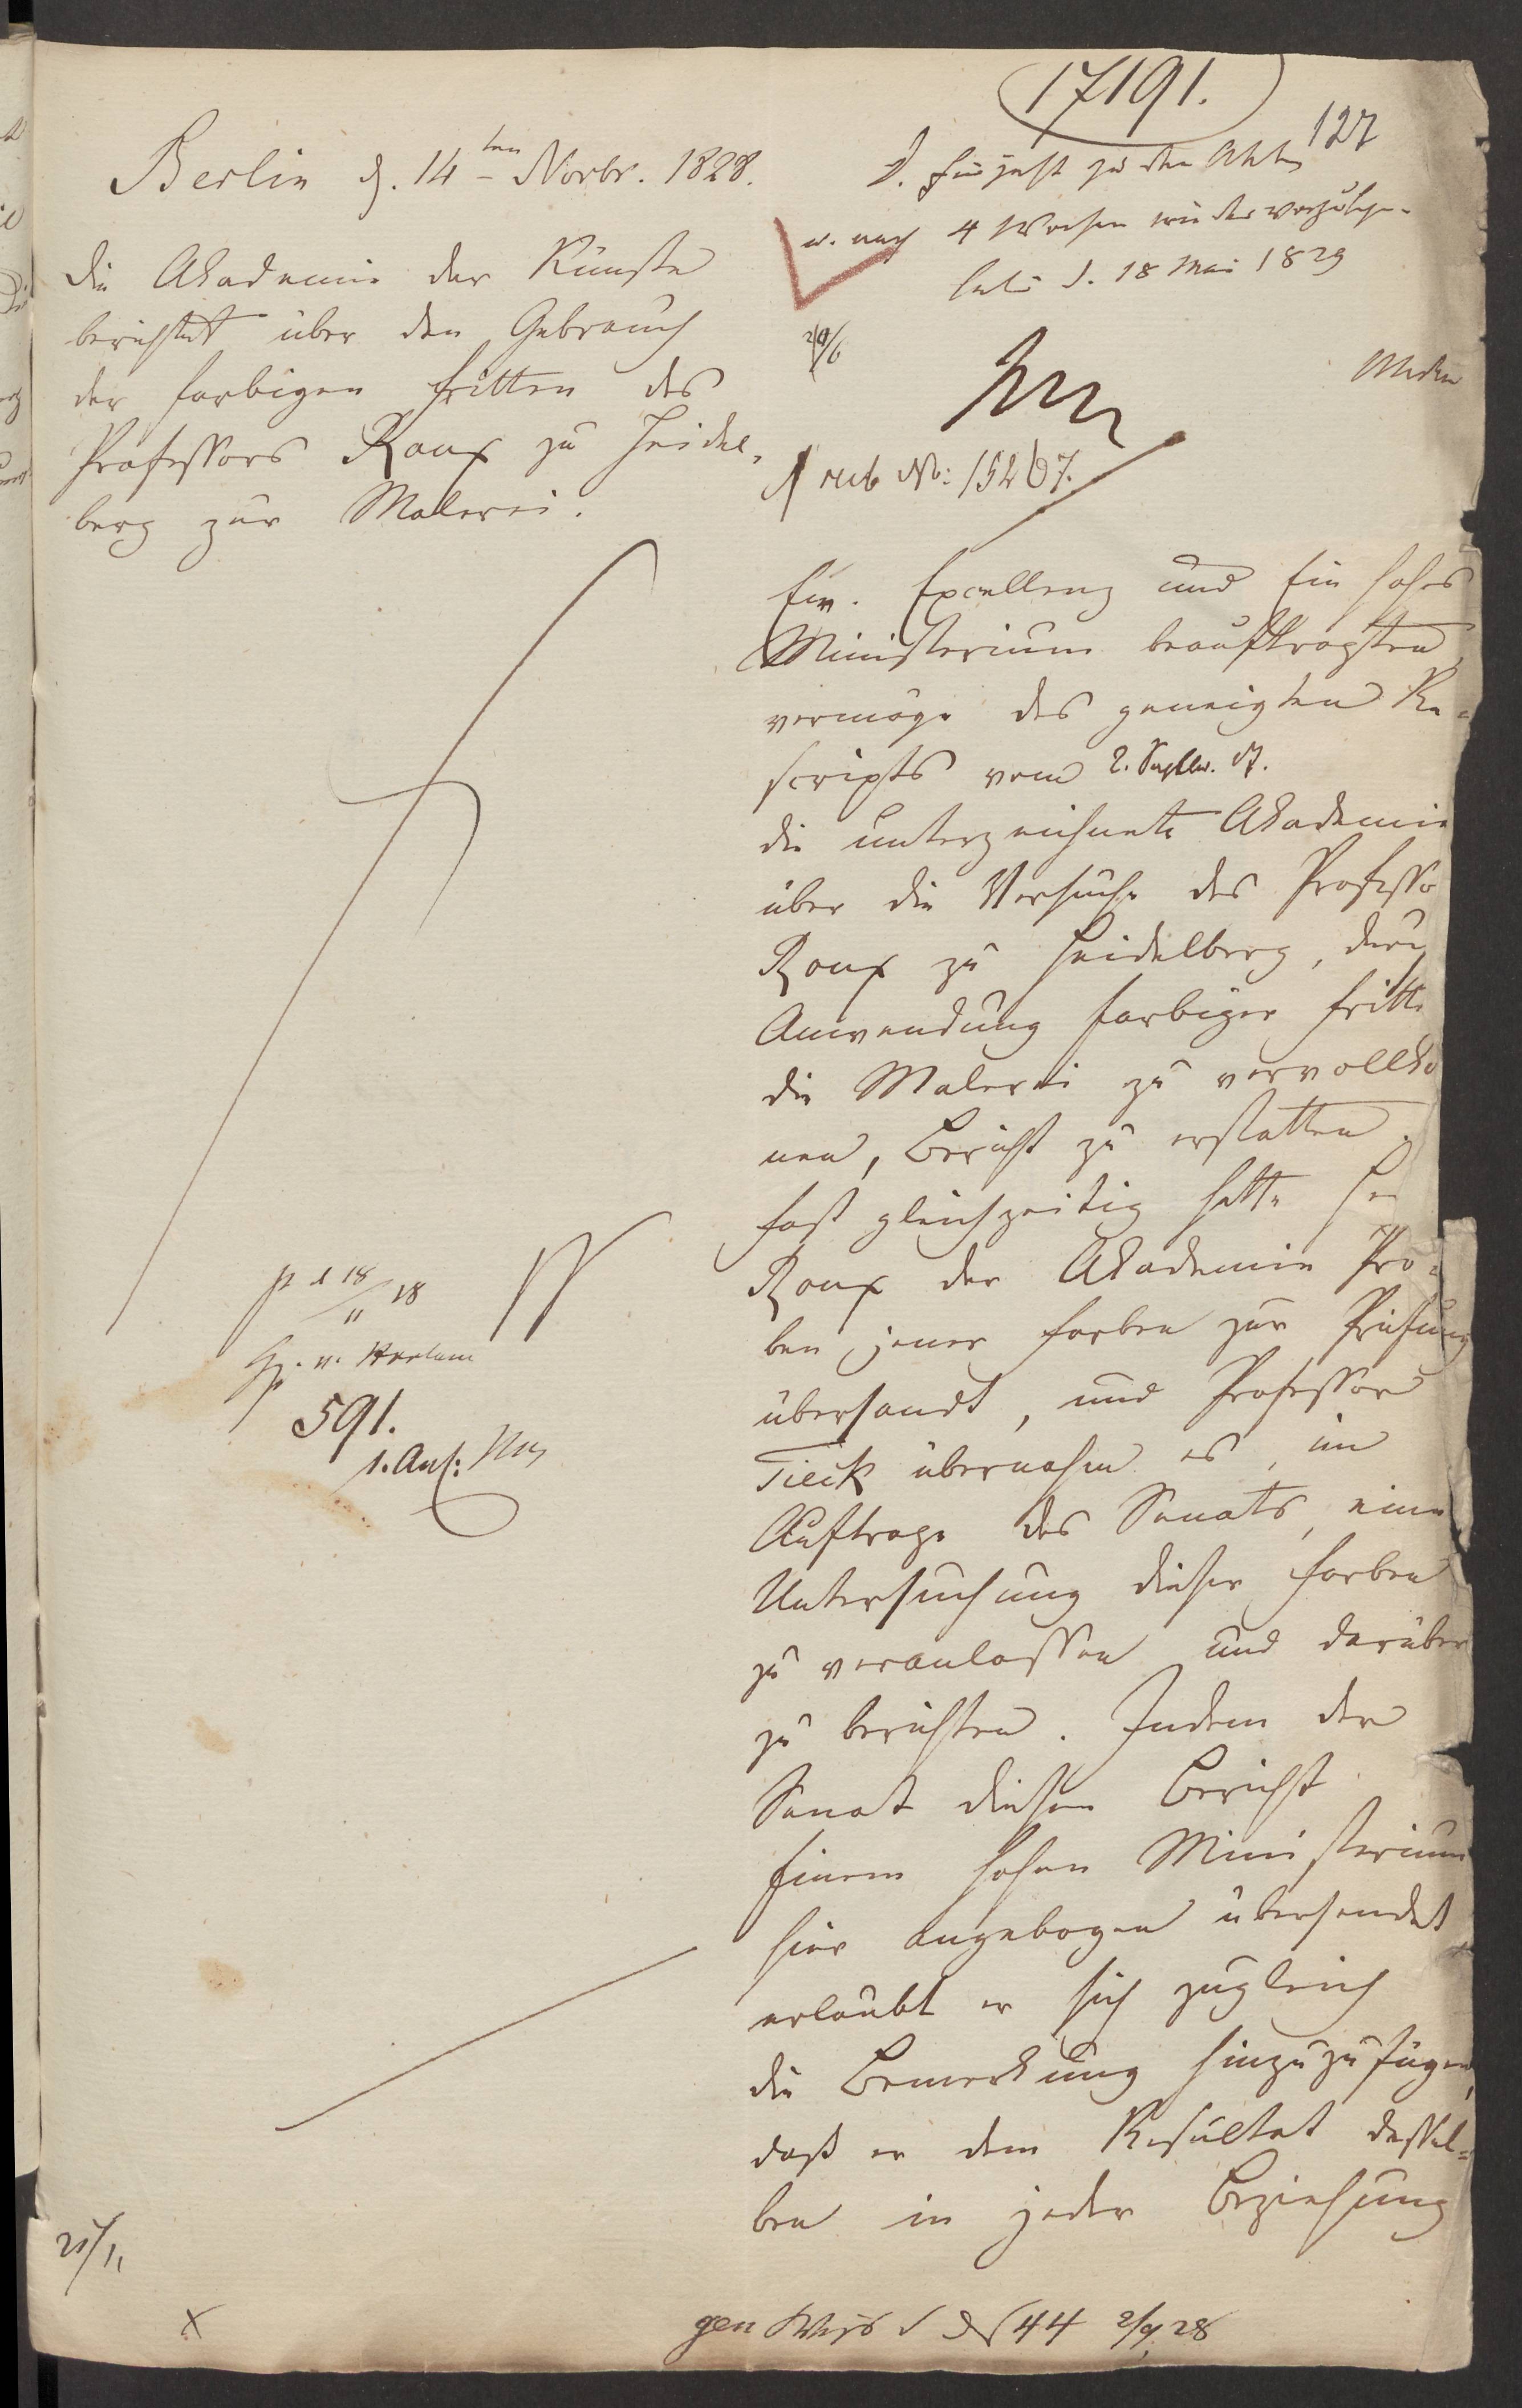 17191.
127
Berlin d. 14ten Novbr. 1828.
Die Akademie der Künste
berichtet über den Gebrauch
der farbigen Fritten des
Professors Roux zu Heidel-
berg zur Malerei.
für jetzt zu den Akten
u. nach 4 Wochen wieder vorzulegen.
d. 18 Mai 1829
No: 15267.
Ew. Excellenz und Ein hohes
Ministerium beauftragten
vermöge des geneigten Re-
scripts vom 2. Septbr.
die unterzeichnete Akademie
über die Versuche des Professo
Roux zu Heidelberg, durch
Anwendung farbiger Fritte
die Malerei zu vervollko
nen, Bericht zu erstatten.
Fast gleichzeitig hatte
Roux der Akademie Pro-
ben jener Farben zur Prüfung
übersandt, und Professor
Tieck übernahm es, im
Auftrage des Senats, eine
Untersuchung dieser Farben
zu veranlassen und darüber
zu berichten. Indem der
Senat diesen Bericht
Einem hohen Ministerium
hier angebogen übersendet
erlaubt er sich zugleich
die Bemerkung hinzuzufügen,
daß er dem Resultat dessel-
ben in jeder Beziehung
18/11 28
591.
1. Anl:
21/11
x
gen 44 2/9 28